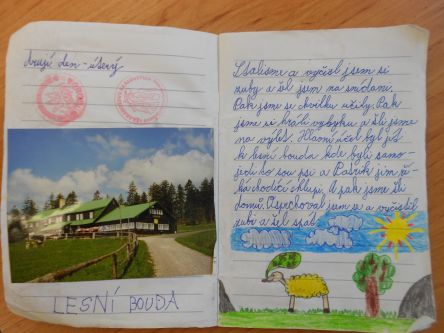 druhí den - úterý
LESNÍ BOUDA
Stali sme a vyčistil jsem si
zuby a šel jsem na snídani.
Pak jsme se chvilku učily. Pak
jsme si hráli vybyku a šli jsme
na výlet. Hlavní účel byl jít
k lesní bouda kde byli samo-
jedi ko sou psi a Patrik jim ří-
ká chodící chlupi. A pak jsme šli
domů. Osprchoval jsem se a vyčistil
zubi a šel spát.